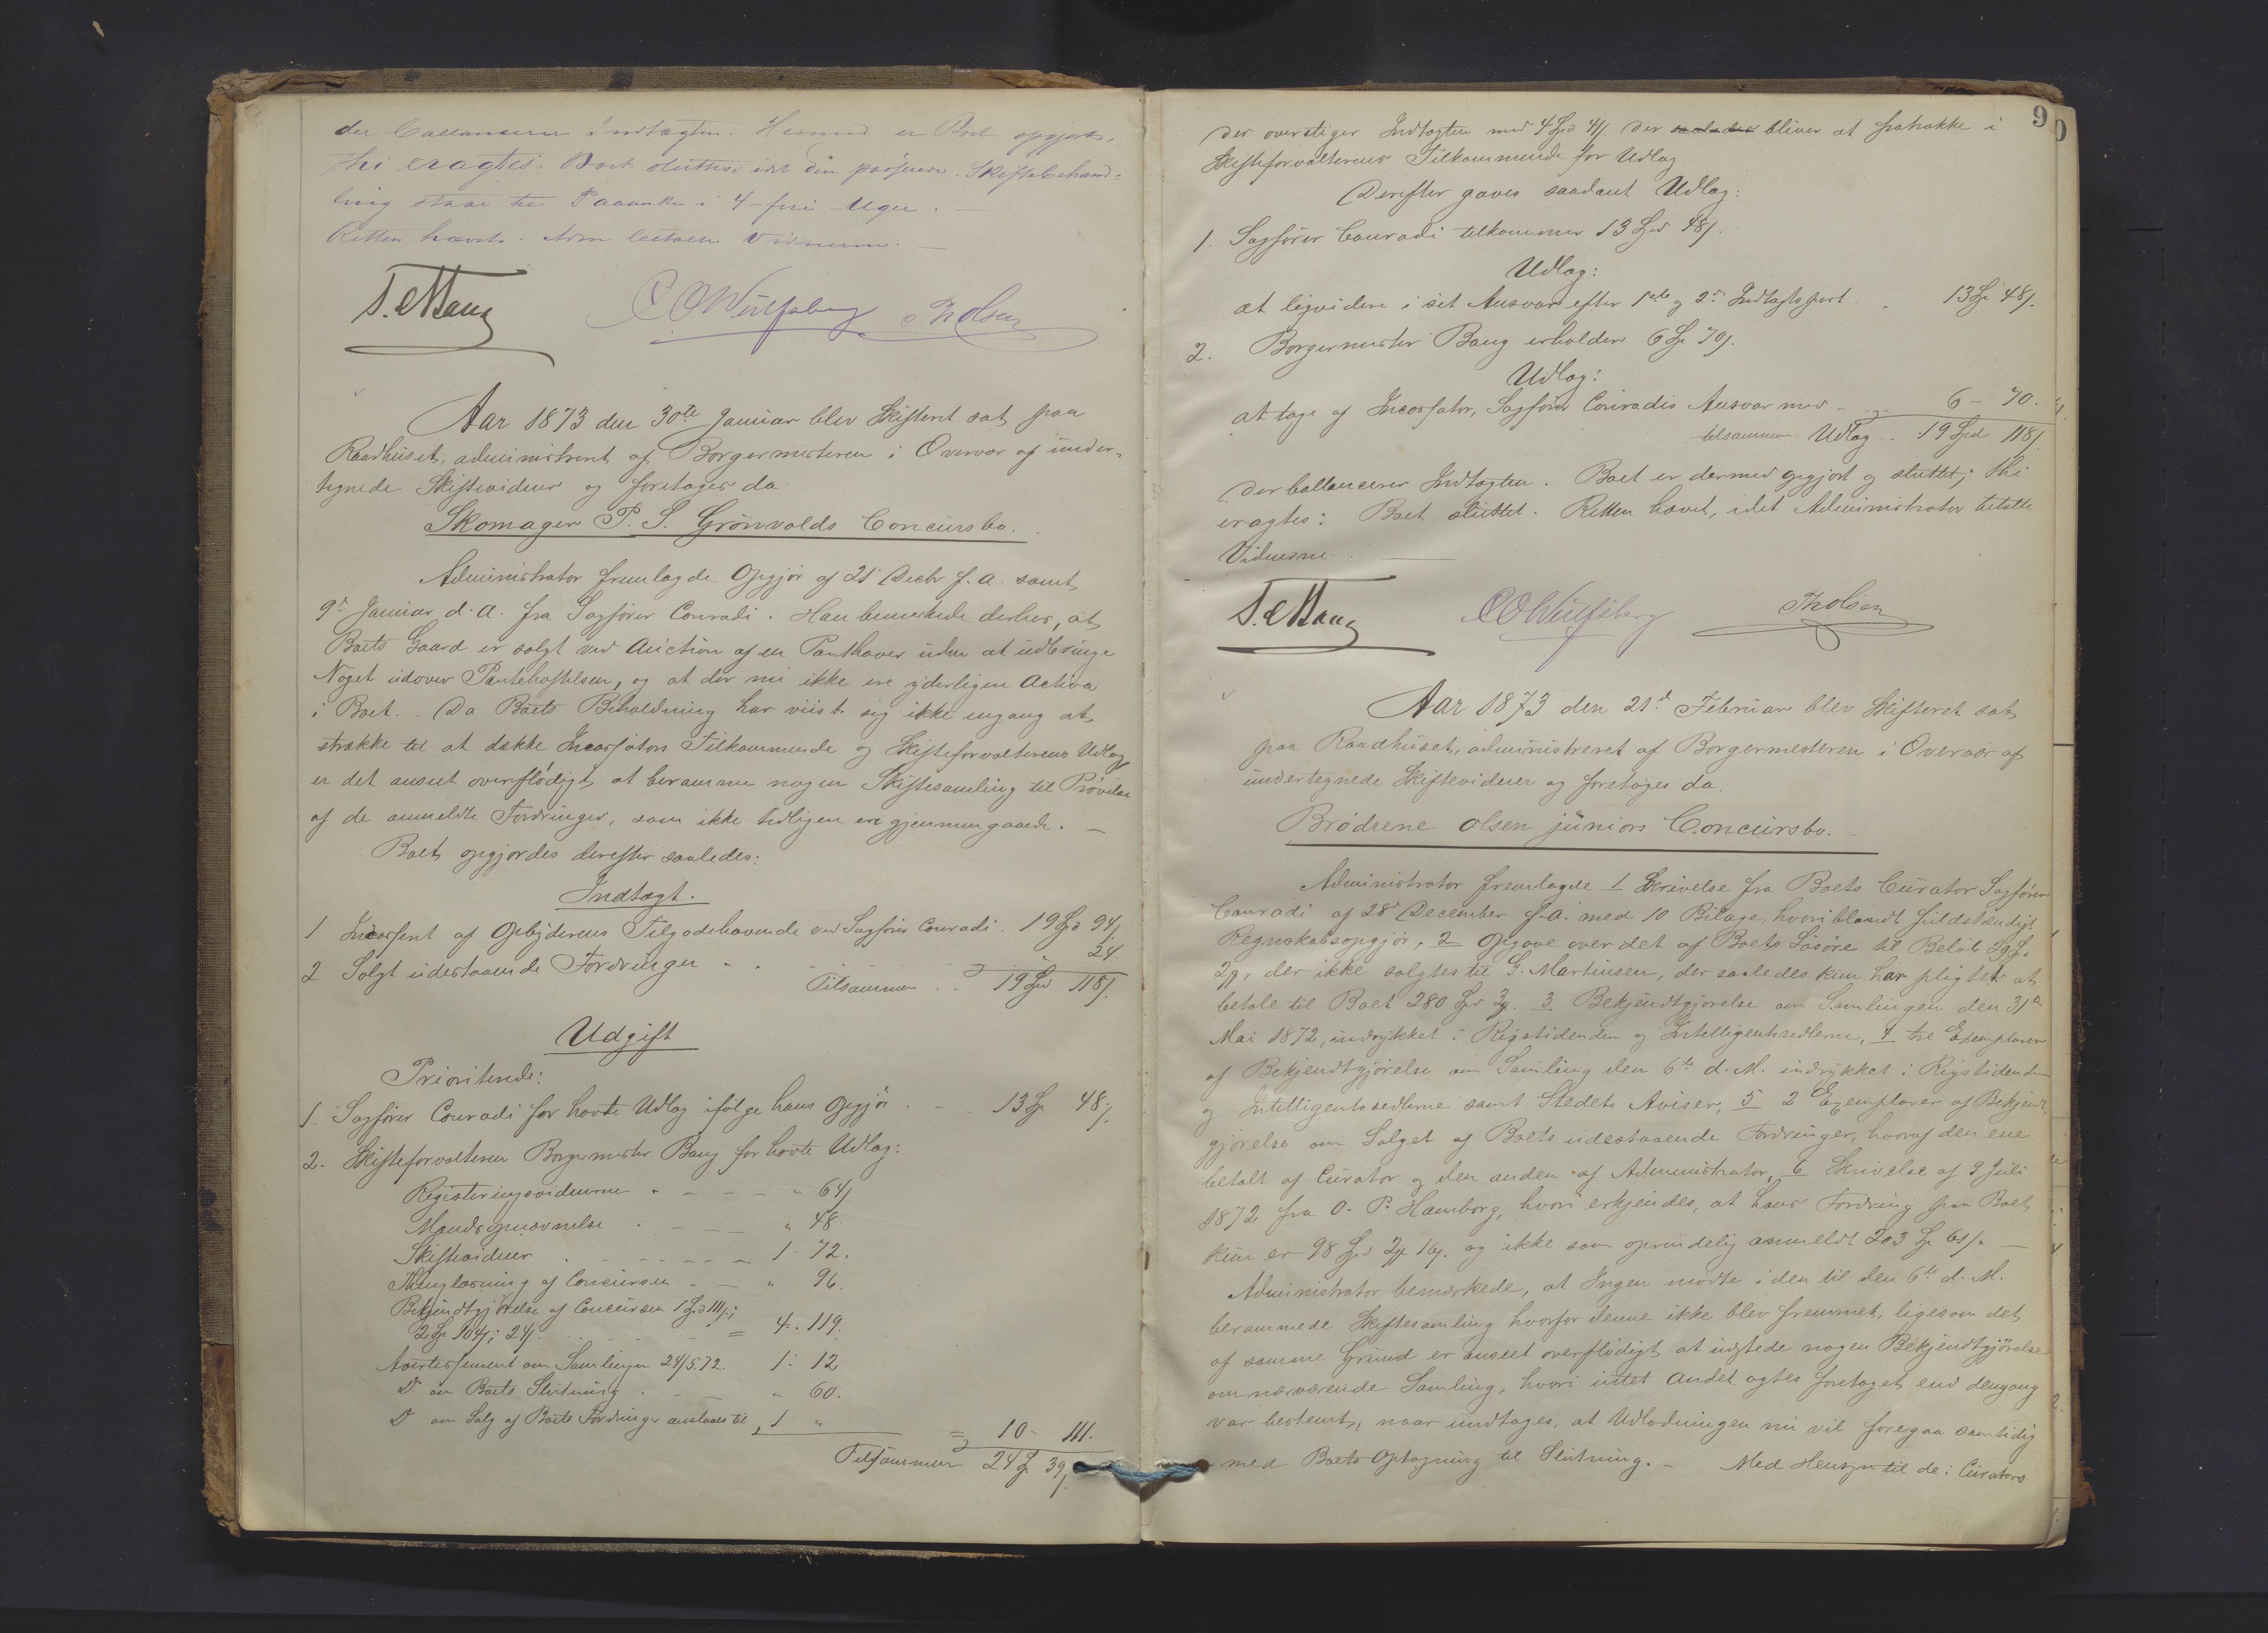 der ballancerer Indtægten. Hermed er Boet opgjort,
thi eragtes: Boet sluttes, idet den passerede Skiftebehand=
ling staar til Paaanke i 4 - fire - Uger. —
Retten hævet. Adm betalte Vidnerne. —
T. Bang C O Wulfsberg Th Olsen
Aar 1873 den 30te Januar blev Skifteret sat paa
Raadhuset, administreret af Borgermesteren i Overvær af under-
tegnede Skiftevidner og foretages da
Skomager P. S. Grönvolds Concursbo.
Administrator fremlagde Opgjör af 21 Decbr f. A. samt
9de Januar d. A. fra Sagförer Conradi. Han bemærkede derhos, at
Boets Gaard er solgt ved Auction af en Panthaver uden at udbringe
Noget udover Pantehæftelsen, og at der nu ikke ere yderligere Activa
i Boet. Da Boets Beholdning har viist sig ikke engang at
strække til at dække Incassators Tilkommende og Skifteforvalterens Udlæg
er det anseet overflödigt at beramme nogen Skiftesamling til Prövelse
af de anmeldte Fordringer, som ikke tidligere ere gjennemgaaede. —
Boet opgjordes derefter saaledes:
Indtægt.
1 Incasseret af Opbyderens Tilgodehavende ved Sagförer Conradi 19 Spd 94 ß
2 Solgt udestaaende Fordringer - - - 24.
Tilsammen . . 19 Spd 118 ß.
Udgift
Prioriterede:
1. Sagförer Conradi for havte Udlæg ifölge hans Opgjör . - - 13 Sp 48 ß.
2. Skifteforvalteren Borgermester Bang for havte Udlæg:
Registeringsvidnerne - - - - " 64 ß
Mandsopnævnelse . - - - " 48.
Skiftevidner . - - - - - 1 - 72.
Thinglæsning af Concursen - - " 96.
Bekjendtgjörelse af Concursen 1 Spd 111 ß;
2 Sp 104 ß; 24 ß. . . - - = 4 . 119.
Avertissement om Samlingen 24/5. 72. 1 : 12
Do om Boets Slutning . - - " 60.
Do om Salg af Boets Fordringer anslaaes til 1 "
= 10 - 111.
Tilsammen 24 Sp 39 ß.
9
der overstiger Indtægten med 4 Spd 41 ß. der saaledes bliver at fratrække i
Skifteforvalterens Tilkommende for Udlæg.
Derefter gaves saadant Udlæg:
1. Sagförer Conradi tilkommer 13 Spd 48 ß.
Udlæg:
at liqvidere i sit Ansvar efter 1ste og 2den Indtægtspost . 13 Sp 48 ß.
2. Borgermester Bang erholder 6 Sp 70 ß.
Udlæg:
at tage af Incassator, Sagförer Conradis Ansvar med - - 6 - 70.
tilsammen Udlæg . . 19 Spd 118 ß
der ballancerer Indtægten. Boet er dermed opgjort og sluttet; thi
eragtes: Boet sluttet. Retten hævet, idet Administrator betalte
Vidnerne. —
T. Bang C O Wulfsberg Th Olsen
Aar 1873 den 21de Februar blev Skifteret sat
paa Raadhuset, administreret af Borgermesteren i Overvær af
undertegnede Skiftevidner og foretages da.
Brödrene Olsen juniors Concursbo. —
Administrator fremlagde 1 Skrivelse fra Boets Curator Sagförer
Conradi af 28de December f. A. med 10 Bilage, hvoriblandt fuldstændigt
Regnskabsopgjör, 2 Opgave over det af Boets Lösöre til Belöb 29 Sp.
2 #, der ikke solgtes til G. Martinsen, der saaledes kun har pligtet at
betale til Boet 280 Spd 3 #. 3 Bekjendtgjörelse om Samlingen den 31te
Mai 1872, indrykket i Rigstidenden og Intelligentssedlerne, 4 tre Exemplarer
af Bekjendtgjörelse om Samling den 6te d. M. indrykket i Rigstidenden
og Intelligentssedlerne samt Stedets Aviser, 5 2 Exemplarer af Bekjendt
gjörelse om Salget af Boets udestaaende Fordringer, hvoraf den ene
betalt af Curator og den anden af Administrator, 6 Skrivelse af 9 Juli
1872 fra O. P. Hamborg, hvori erkjendes, at hans Fordring paa Boet
kun er 98 Spd 2 # 16 ß. og ikke som oprindelig anmeldt 203 Sp 61 ß. —
Administrator bemærkede, at Ingen mödte i den til den 6te d. M.
berammede Skiftesamling hvorfor denne ikke blev fremmet, ligesom det
af samme Grund er anseet overflödigt at udstede nogen Bekjendtgjörelse
om nærværende Samling, hvori intet andet agtes foretaget end dengang
var bestemt, naar undtages, at Udlodningen nu vil foregaa samtidig
med Boets Optagning til Slutning. — Med Hensyn til de i Curators